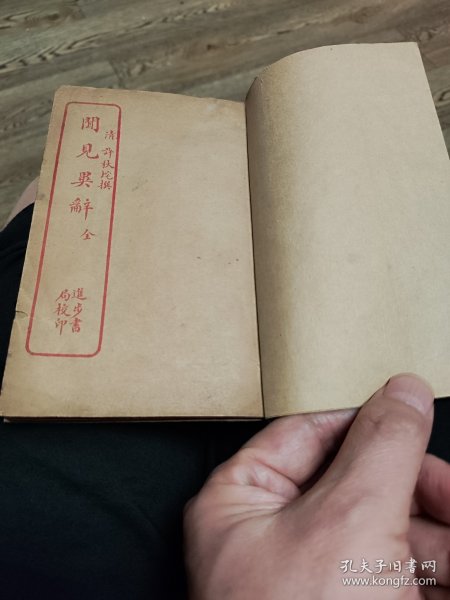 清 許秋垞撰
聞見異辭 全
進步書
局校印
孔夫子旧书网
www.kongfz.com